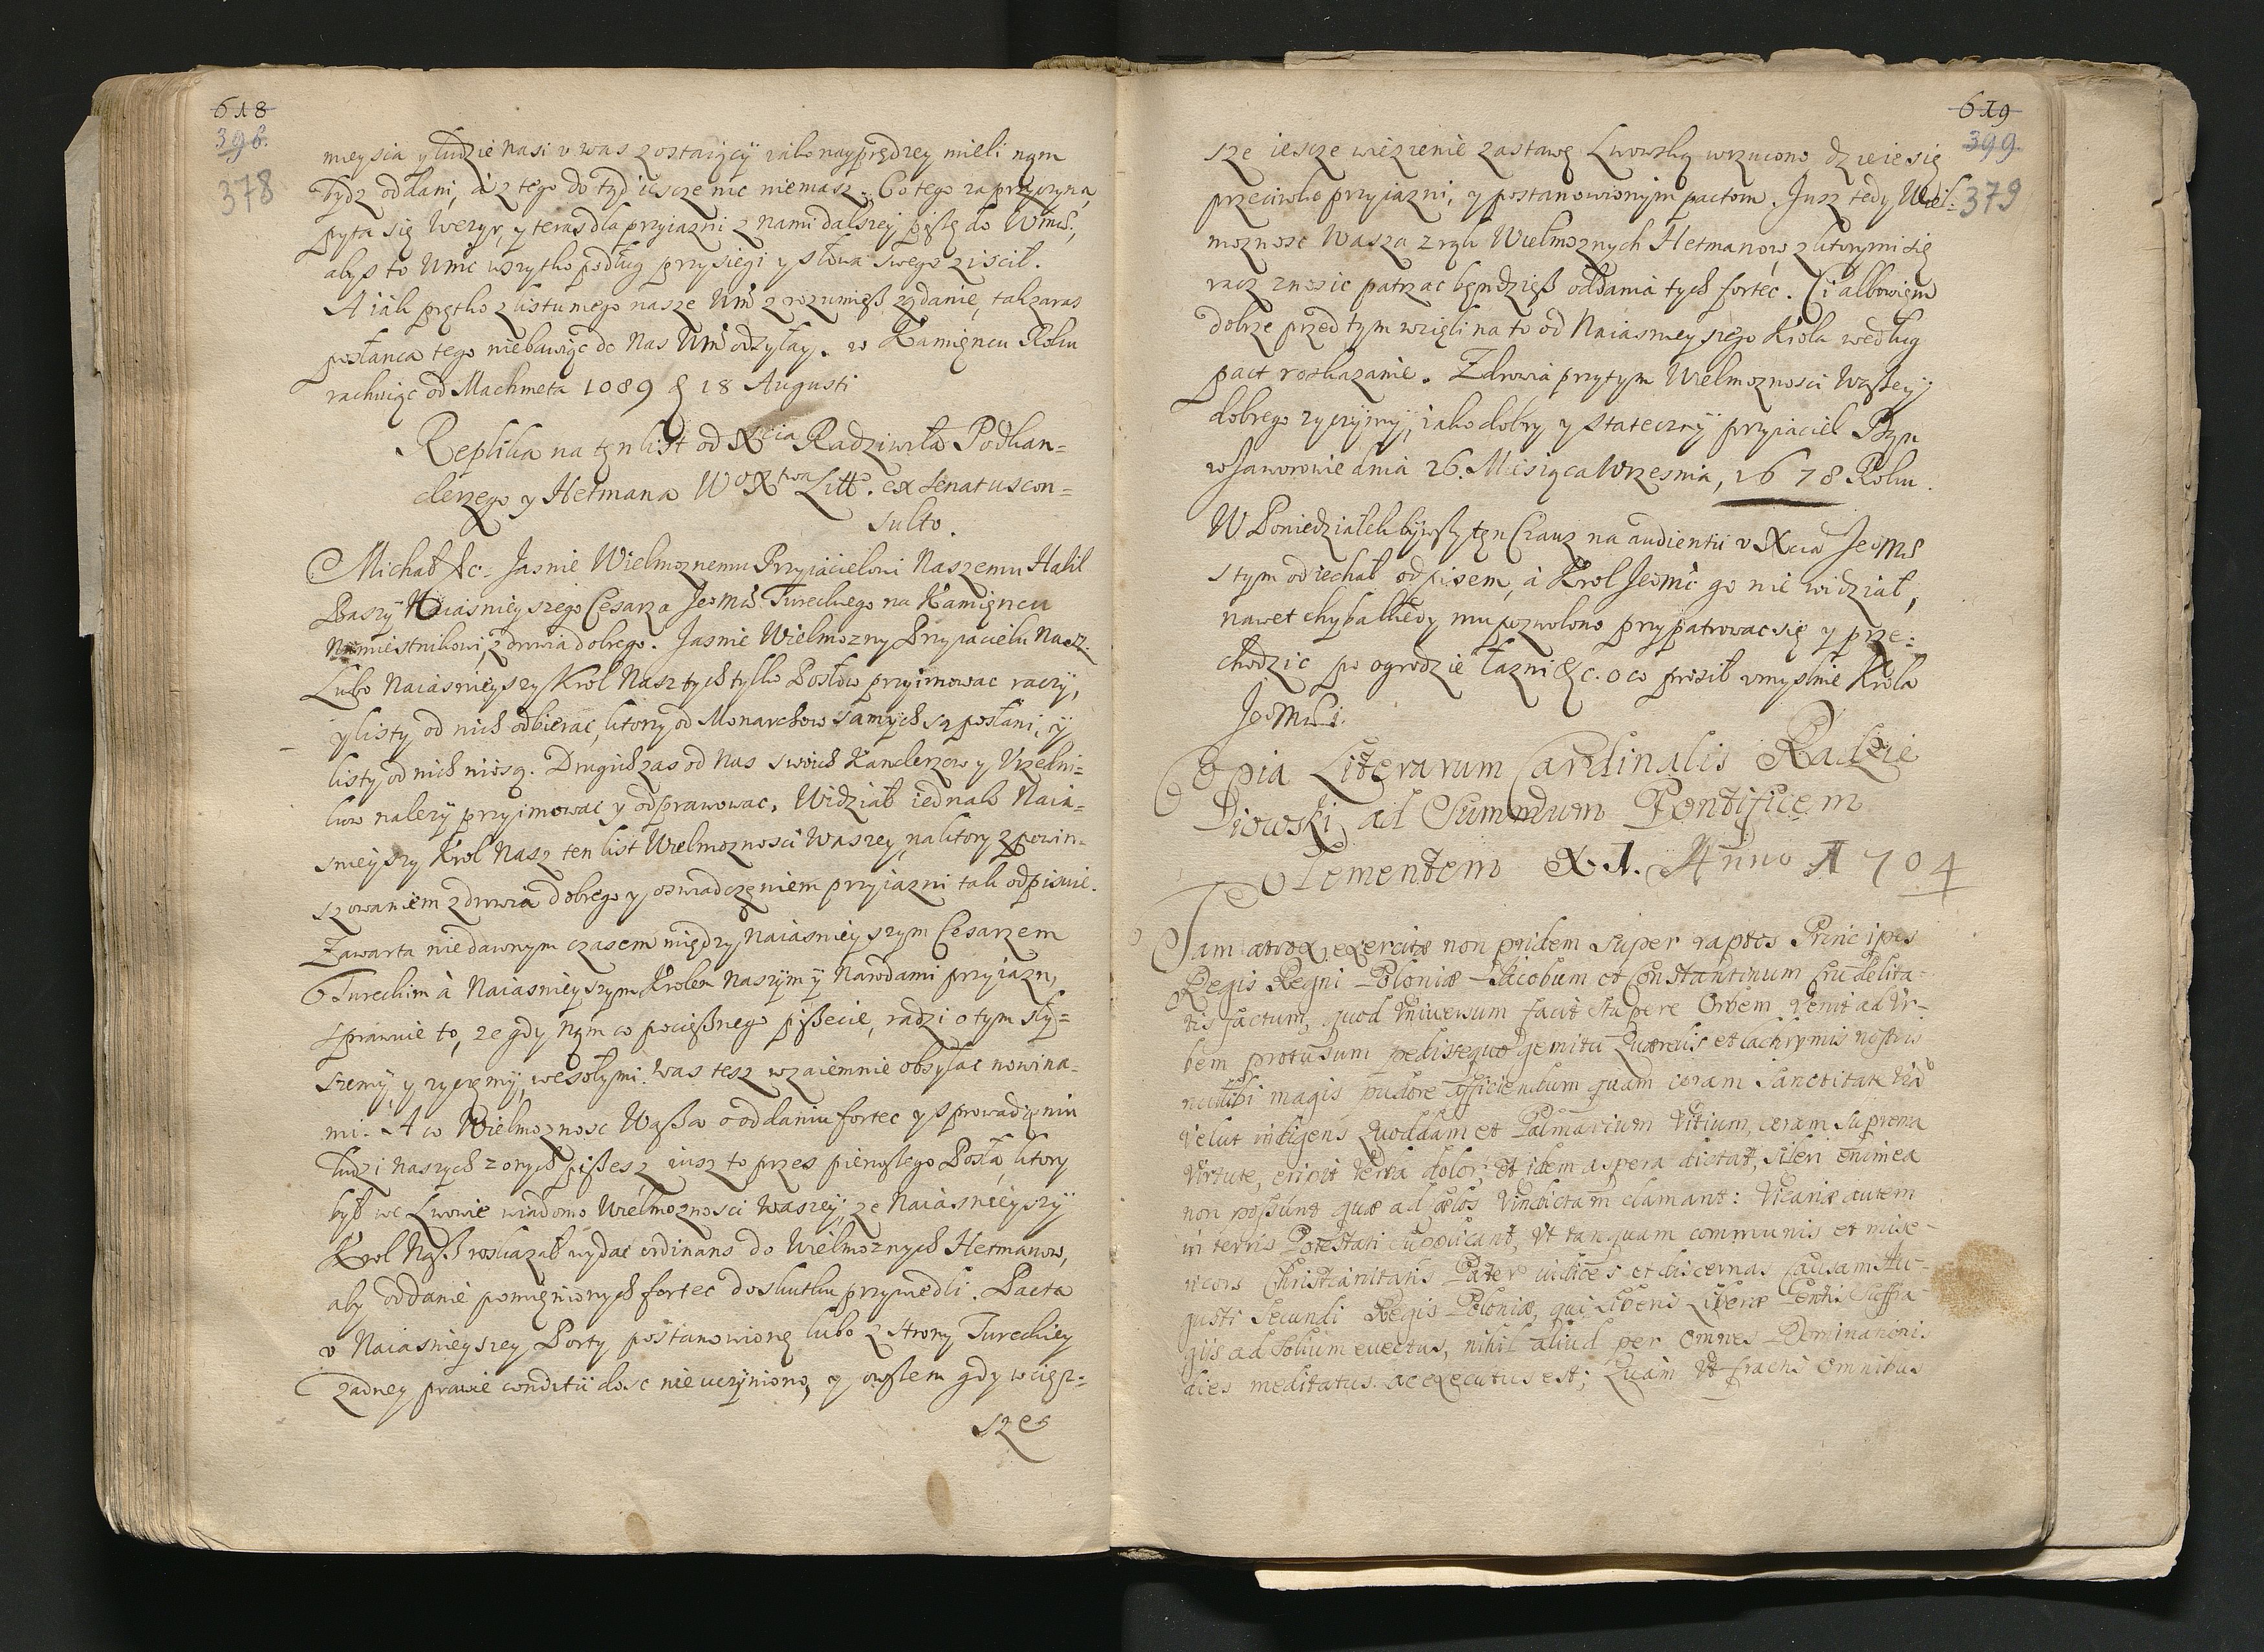 618
396.
378
mieysca y ludzie nasi v was zostaiący iako nayprędzey mieli nąm
bydz oddani, á z tego do tąd iescze nic niemasz. Co tego za przyczyna,
pyta się Wezyr, y teras dla przyiazni z nami dalszey piszę do Wmći,
abys to Wmć wszytko podług przysięgi y słowa swego ziscił.
A iak prętko z listu mego nasze Wmć zrozumięsz ządanie, tak zaras
posłanca tego niebawiąc do Nas Wmć odzyłay. w Kamięncu Roku
rachuiąc od Machmeta 1089 d 18 Augusti
Replika na tęn list od Xcia Radziwiła Podkan=
clerzego y Hetmana W° Xtwa Litt°. ex Senatus con=
sulto.
Michał &c: Jasnie Wielmoznemu Przyiacielowi Naszemu Halil
Baszÿ Naiasnieyszego Cesarza Jeo Mći Tureckiego na Kamięncu
Namiestnikowi, zdrowia dobrego. Jasnie Wielmozny Przyiacielu Nasz.
Lubo Naiasnieyszy Krol Nasz tych tylko Posłow przyimowac raczy,
y listy od nich odbierac, ktorzy od Monarchow samych są posłani, ÿ
listÿ od nich niosą. Drugich zas od Nas swoich Kanclerzow y Vrzedni=
kow nalezÿ przyimowac y odprawowac, Widział iednak Naia=
snieyszy Krol Nasz ten list Wielmoznosci Waszey, na ktory z powin=
szowaniem zdrowia dobrego y oswiadczęniem przyiazni tak odpisuie.
Zawarta niedawnym czasem między Naiasnieyszym Cesarzem
Tureckim à Naiasnieyszym Krolem Naszym ÿ Narodami przyiazn,
sprawuie to, ze gdy nąm co pocięsznego piszecie, radzi o tym sły=
szemÿ, y zyczęmÿ, wesołymi. Was tesz wzaiemnie obsyłac nowina=
mi. A co Wielmoznosc Wasza o oddaniu fortec y sprowadzęniu
ludzi naszych z onych piszesz, iusz to przes pierwszego Posła, ktory
był we Lwowie wiadomo Wielmoznosci Waszey, ze Naiasnieyszÿ
Krol Nasz roskazał wydac ordinans do Wielmoznych Hetmanow,
aby oddanie pomięnionych fortec do skutku przywiedli. Pacta
v Naiasnieyszey Porty postanowionę lubo z strony Tureckiey
zadney prawie conditÿ dosc nieuczÿniono, y owszem gdy w cięz=
sze
619
399.
379
sze iescze więzienie zastawę Lwowską wrzucono dzieie się
przeciwko przyiazni, y postanowionym pactom. Jusz tedy Wiel=
moznosc Wasza z rąk Wielmoznych Hetmanow, z ktorymi się
racz znosic patrzac bęndziesz oddania tych fortec. Ci albowięm
dobrze przed tym wzięli na to od Naiasnieyszego Krola według
pact roskazanie. Zdrowia przytym Wielmoznosci Waszeÿ
dobrego zyczÿmÿ, iako dobry y statecznÿ przyiaciel Pizan
w Jaworowie dnia 26. Miesiąca Wrzesnia, 1678 Roku.
W Poniedziałek bÿwszÿ tęn Czauz na audientii v Xcia JeoMći
s tym odiechał odpisem, à Krol Jeomć go nie widział,
nawet chyba kiedy mu pozwolono przypatrowac się y prze=
chodzic po ogrodzie Łazni &c. o co prosił vmyslnie Krola
Jeo Mći.
Copia Literarum Cardinalis Radzie
Piowski ad Summum Pontificem
Clementem XI. Anno 1704
Jam atrox, exercitæ non pridem super raptos Principes
Regis Regni Poloniæ Jacobum et Constantinum Crudelita=
tis factum, quod Vniversum facit stupere Orbem, venit ad Vr=
bem protusum pedissequo gemitu Querelis et lachrymis nostris
nullibi magis pudore afficiendum quam coram Sanctitate Vrâ
velut indigens Quoddam et Palmarium Vitium, coram Suprema
Virtute, eripit verba dolor, et idem aspera dictat, sileri enim ea
non possunt quæ ad cœlos Vindictam clamant: Vicariæ autem
in terris Potestati supplicant, Vt tanquam communis et mise=
ricors Christianitatis Pater iudices et discernas Causam Au=
gusti Secundi Regis Poloniæ, qui Liberis Liberæ Gentis Suffra=
gijs ad Solium euectus, nihil aliud per omnes Dominationis
dies meditatus ac executus est; Quàm Vt fractis omnibus